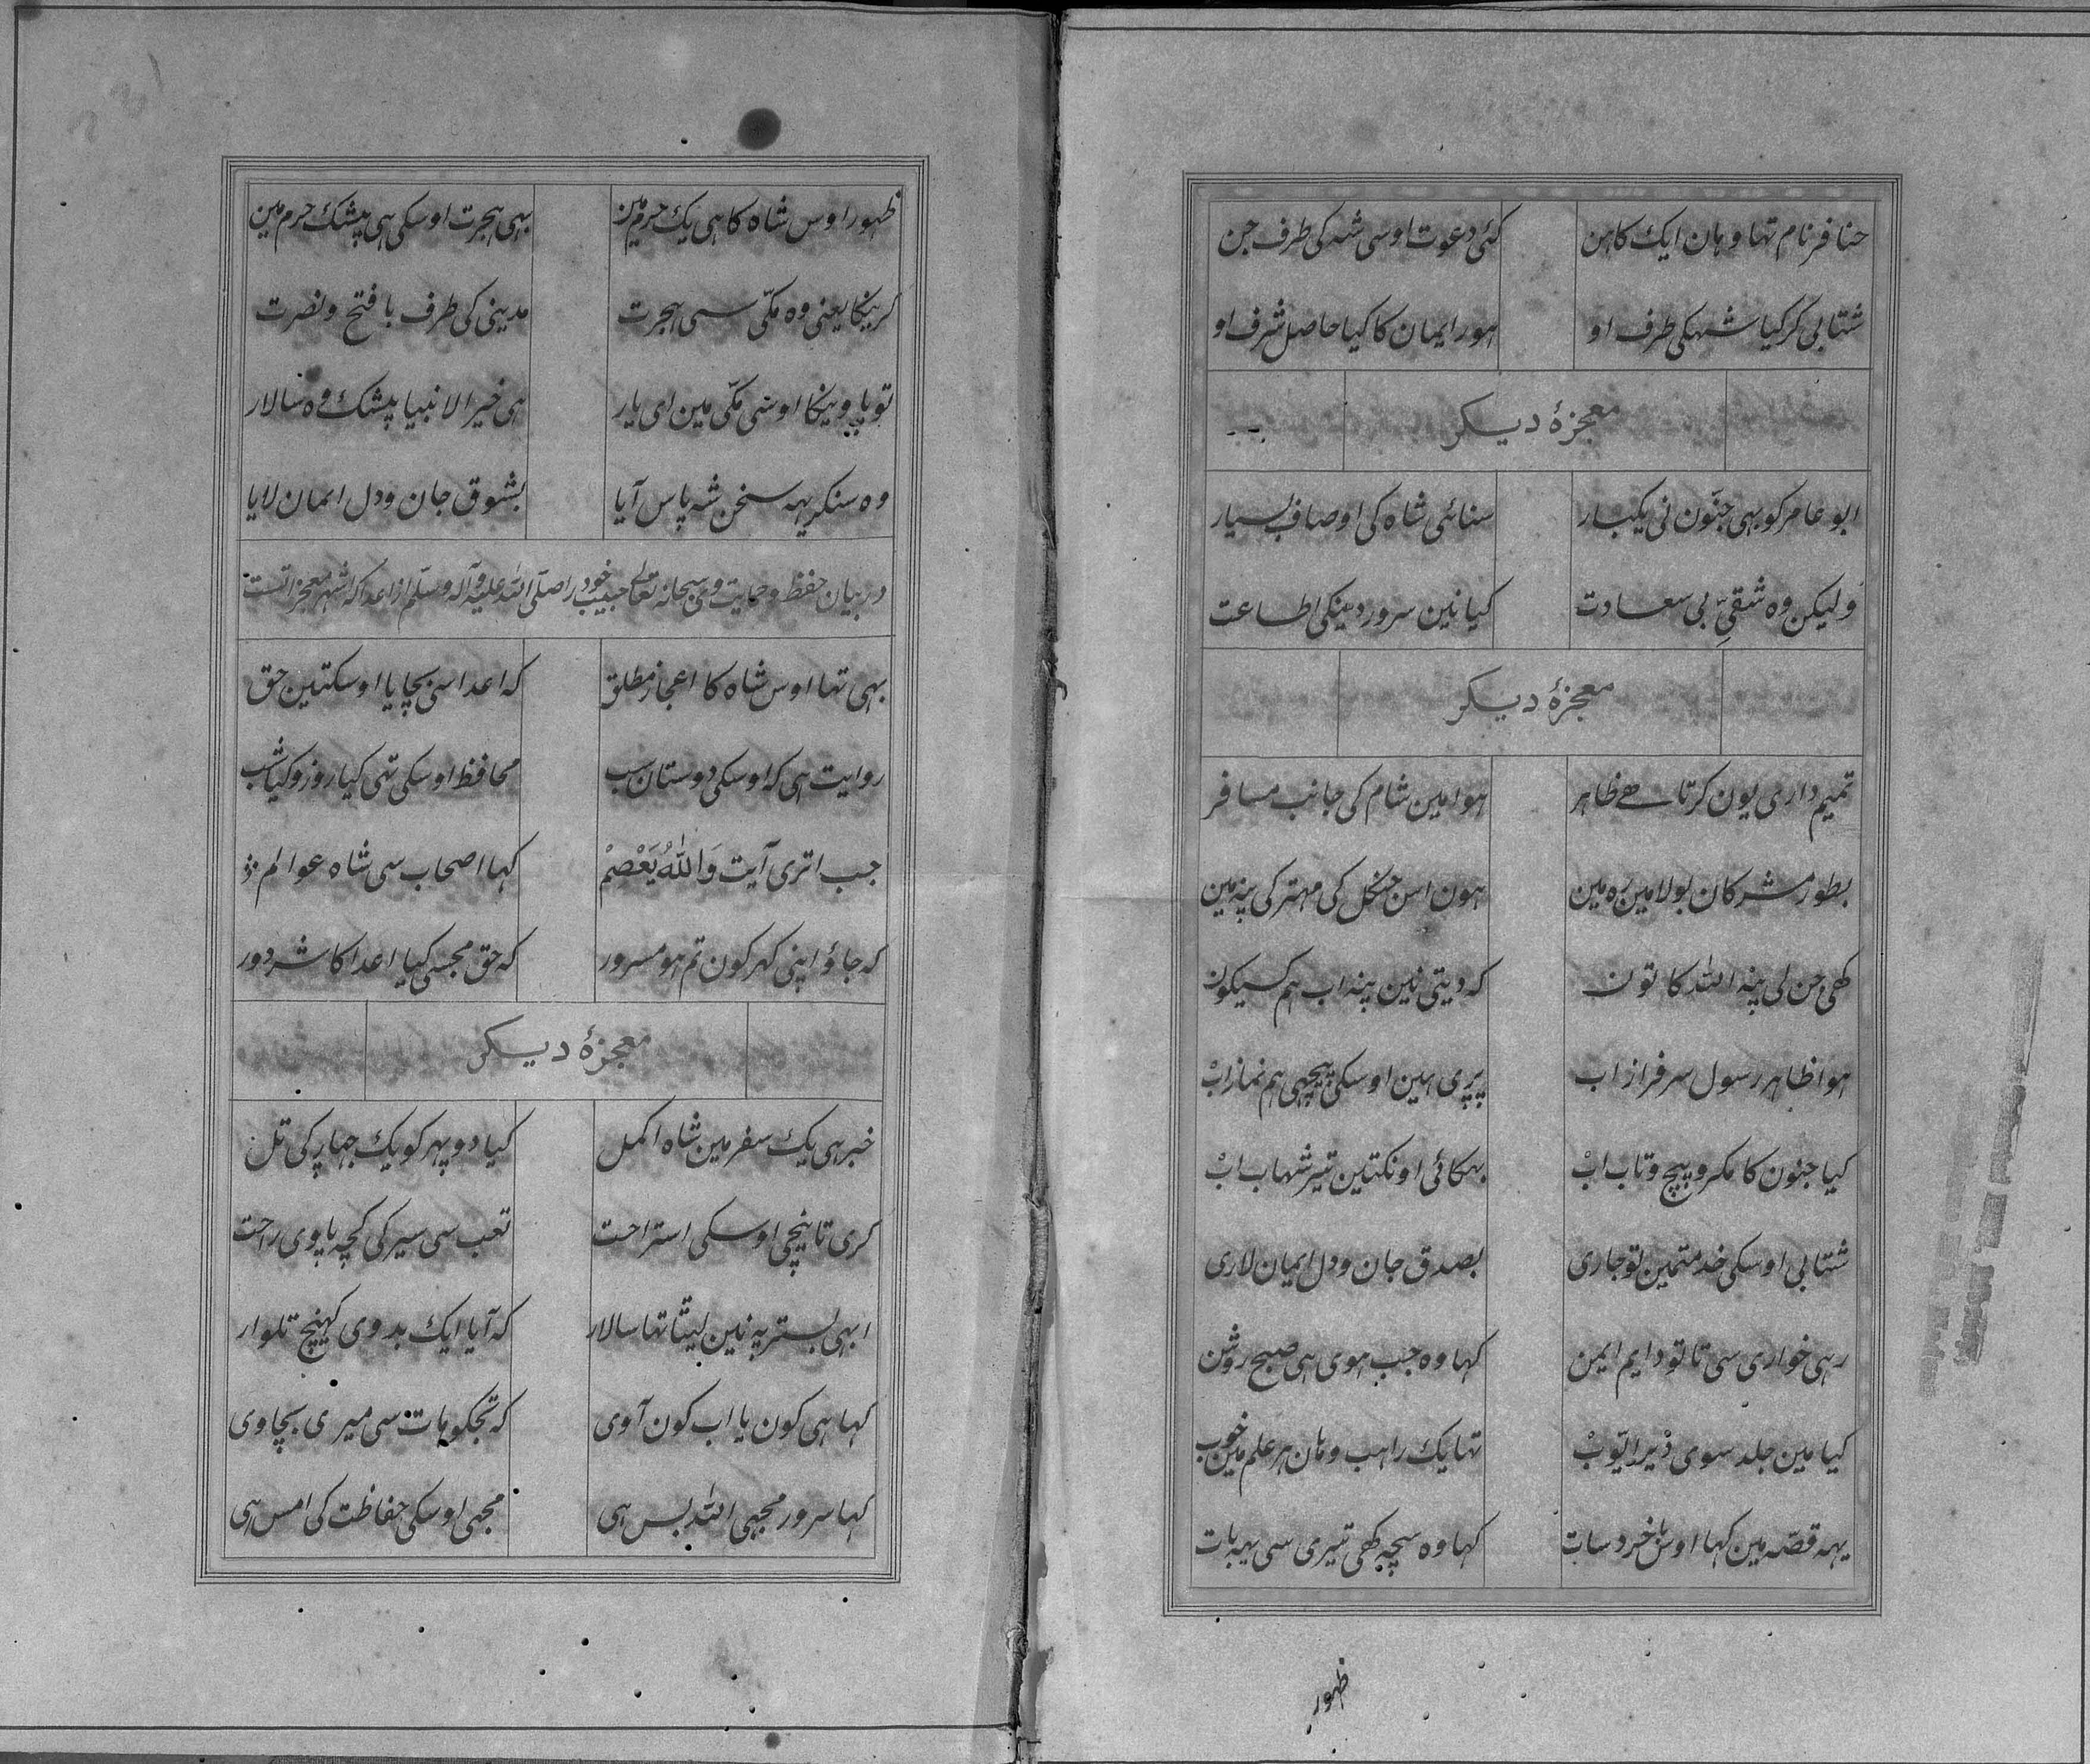 خنافر نام تها وہان ایک کاہن کئی دعوت اوسی شہ کی طرف جن
شتابی کر کیا شہکی طرف او ہور ایمان کا کیا حاصل شرف او
معجزۂ دیگر
ابو عامر کو بہی جنّون نی یکبار سنائی شاہ کی اوصاف بسیار
ولیکن وہ شقیِّ بی سعادت کیا نین سرور دینکی اطاعت
معجزۂ دیگر
تمیم داری یون کرتا ہے ظاہر ہوا مین شام کی جانب مسافر
بطور مشرکان بولا مین رہ مین ہون اس جنگل کی مہتر کی پنہ مین
کهی جن لی پنہ اللہ کا تون کہ دیتی نین پنہ اب ہم کسیکون
ہوا ظاہر رسول سرفراز اب پڑی ہین اوسکی پیچہی ہم نماز اب
کیا جنون کا مکر و پیچ و تاب اب بہکائی اونکتین تیر شہاب اب
شتابی اوسکی خدمتمین تو جاری بصدق جان و دل ایمان لاری
رہی خواری سی تا تو دایم ایمن کہا وہ جب ہوی ہی صبح روشن
کیا مین جلد سوی دیر ایوب تها یک راہب وہان ہر علم مین خوب
یہہ قصّہ مین کہا اوس باخرد سات کہا وہ سچہ کهی تیری سی یہہ بات
ظہور
ظہور اوس شاہ کا ہی یک حرم مین بہی ہجرت اوسکی ہی بیشک حرم مین
کرینگا یعنی وہ مکّی سی ہجرت مدینی کی طرف با فتح و نصرت
تو پاوینگا اوسی مکّی مین ای یار ہی خیر الانبیا بیشک وہ سالار
وہ سنکر یہہ سخن شہ پاس آیا بشوق جان و دل ایمان لایا
در بیان حفظ و حمایت وی سبحانہ تعالی حبیب خود را صلّی اللہ علیہ وآلہ وسلّم از اعدا کہ اشہر معجزاتست
بہی تها اوس شاہ کا اعجاز مطلق کہ اعدا سی بچایا اوسکتین حق
روایت ہی کہ اوسکی دوستان سب محافظ اوسکی تهی کیا روز و کیا شب
جب اتری آیت وَاللّٰهُ يَعْصِمْ کہا اصحاب سی شاہ عوالم
کہ جاؤ اپنی کہر کون تم ہو مسرور کہ حق مجسی کیا اعدا کا شر دور
معجزۂ دیگر
خبر ہی یک سفر مین شاہ اکمل کیا دوپہر کو یک جہاڑ کی تل
کری تا نیچی اوسکی استراحت تعب سی سیر کی کچہ پاوی راحت
ابہی بستر پہ نین لیٹا تها سالار کہ آیا ایک بدوی کہینچ تلوار
کہا ہی کون یا اب کون آوی کہ تجکو ہات سی میری بچاوی
کہا سرور مجہی اللہ بس ہی مجہی اوسکی حفاظت کی امس ہی